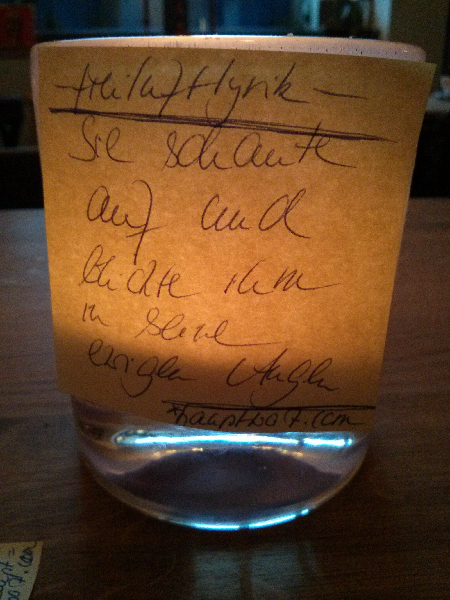 - Freiluftlyrik -
Sie schaute
auf und
blickte ihm
in seine
ewigen Augen